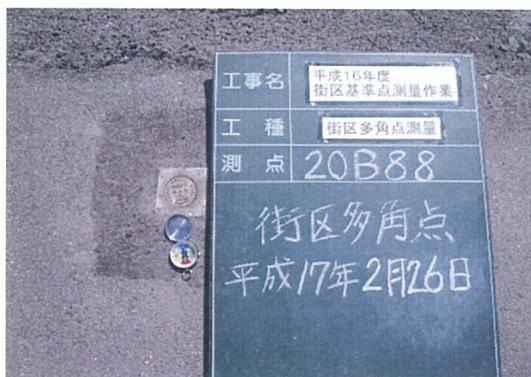 工事名
平成16年度
街区基準点測量作業
工種
街区多角点測量
測点
20B88
街区多角点
平成17年2月26日